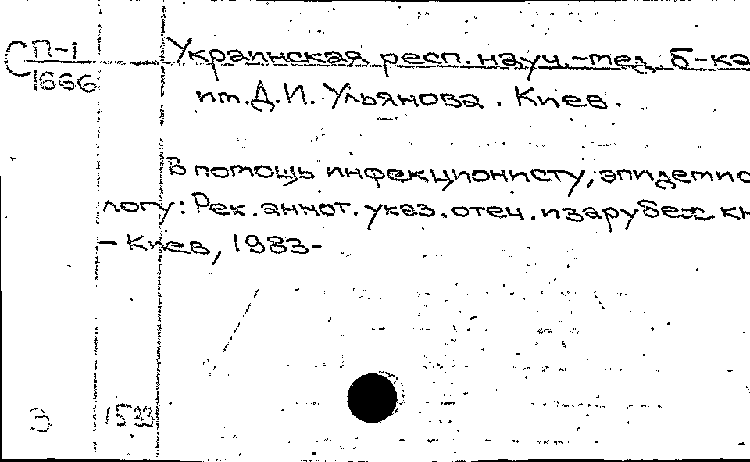 С П-1
1666
Украинская респ. науч.-мед. б-ка
им. Д.И. Ульянова. Киев.
В помощь инфекционисту, эпидемио
логу: Рек. аннот. указ. отеч. и зарубеж кн
- Киев, 1983-
3 1533